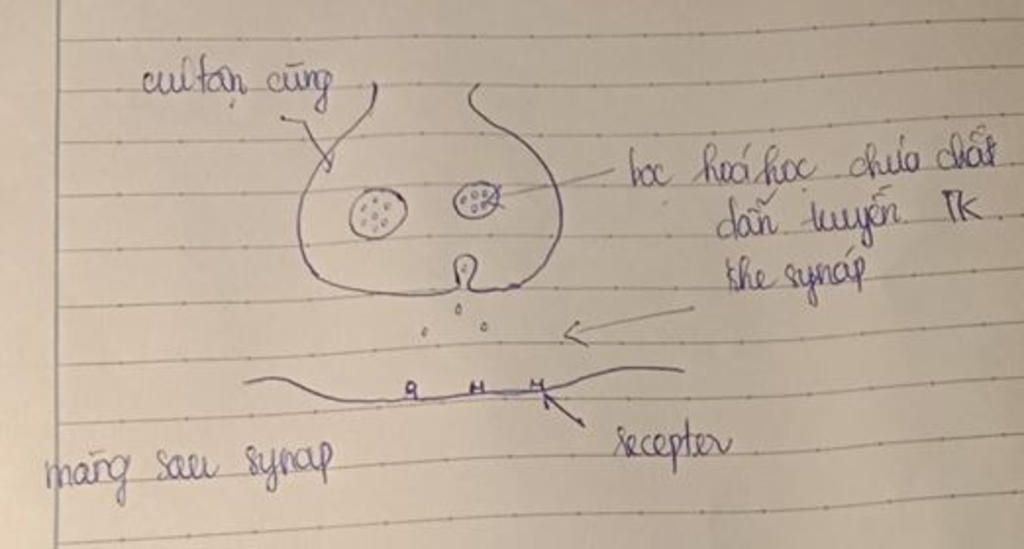 cúc tận cùng
bọc hoá học chứa chất
dẫn truyền TK
khe synáp
recepter
màng sau synap